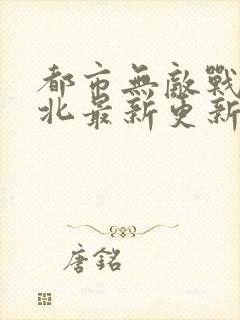 都市無敵戰
北最新更新
唐銘